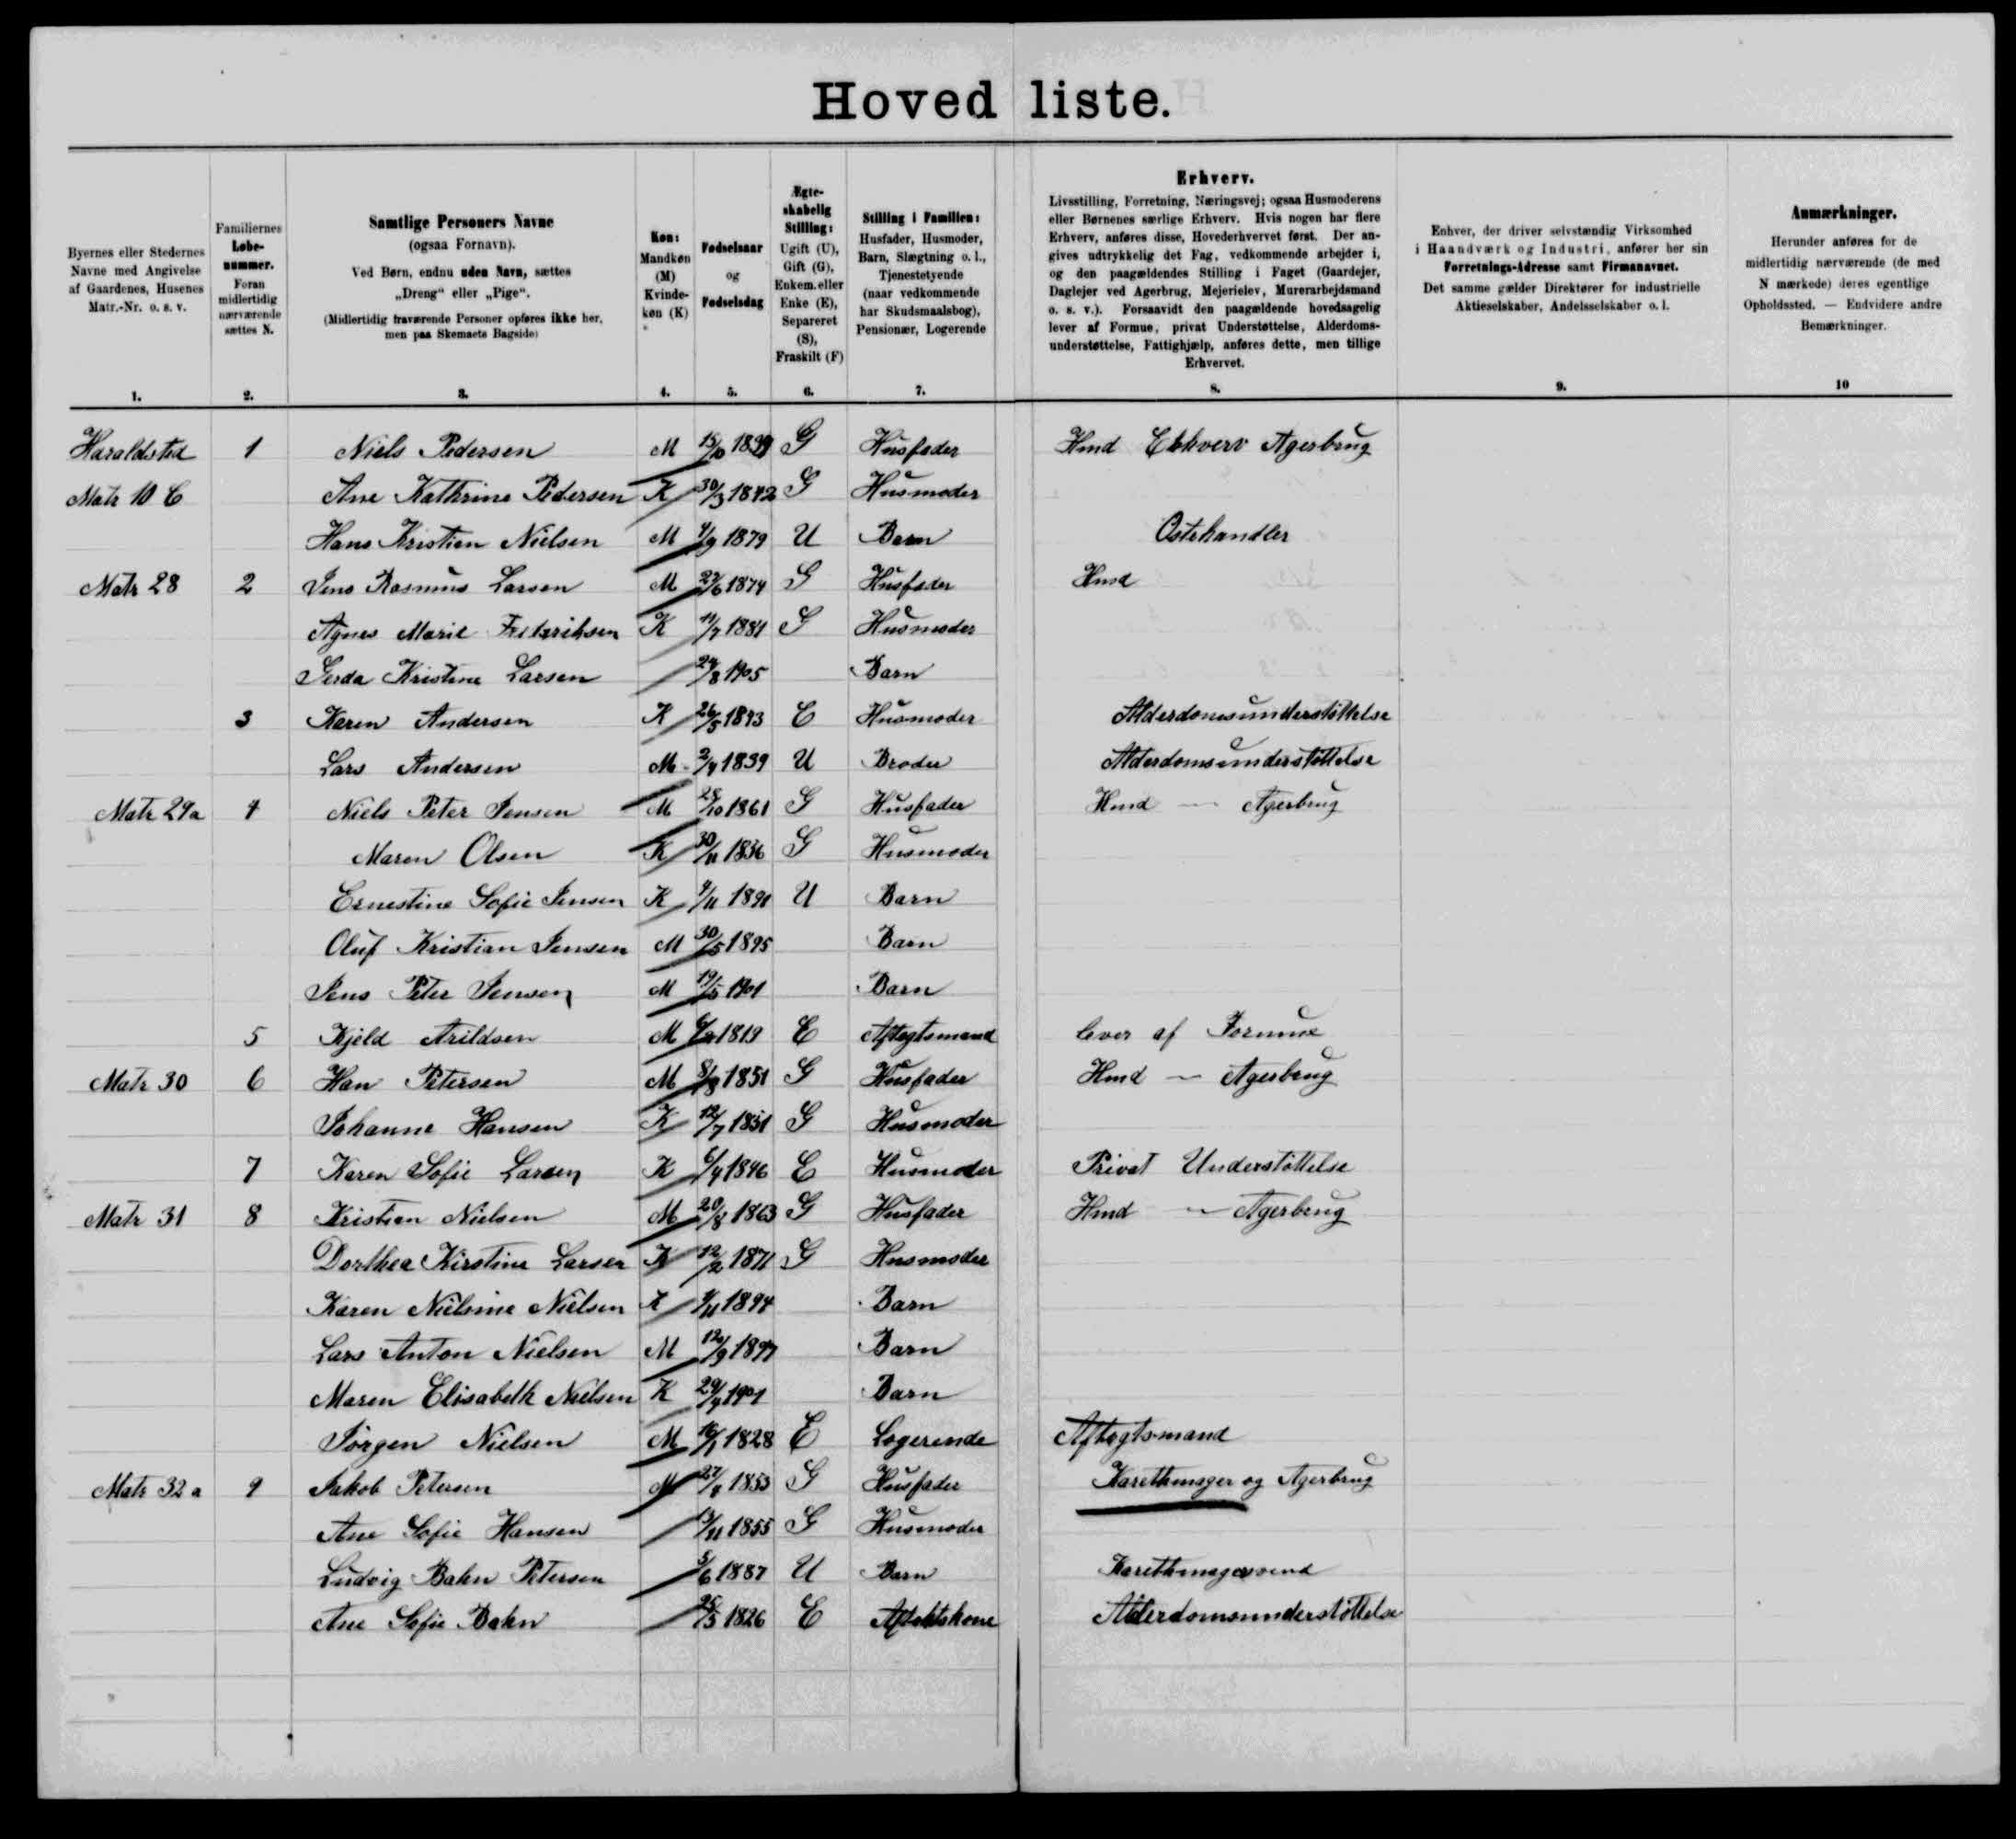 Hoved liste.
Byernes eller Stedernes Navne med Angivelse af Gaardenes, Husenes Matr.-Nr. o. s. v.
Familiernes Løbenummer. Foran midlertidig nærværende sættes N.
Samtlige Personers Navne (ogsaa Fornavn). Ved Børn, endnu uden Navn, sættes „Dreng“ eller „Pige“. (Midlertidig fraværende Personer opføres ikke her, men paa Skemaets Bagside)
Køn: Mandkøn (M) Kvindekøn (K)
Fødselsaar og Fødselsdag
Ægteskabelig Stilling: Ugift (U), Gift (G), Enkem. eller Enke (E), Separeret (S), Fraskilt (F)
Stilling i Familien: Husfader, Husmoder, Barn, Slægtning o. l., Tjenestetyende (naar vedkommende har Skudsmaalsbog), Pensionær, Logerende
Erhverv.
Livsstilling, Forretning, Næringsvej; ogsaa Husmoderens eller Børnenes særlige Erhverv. Hvis nogen har flere Erhverv, anføres disse, Hovederhvervet først. Der angives udtrykkelig det Fag, vedkommende arbejder i, og den paagældendes Stilling i Faget (Gaardejer, Daglejer ved Agerbrug, Mejerielev, Murerarbejdsmand o. s. v.). Forsaavidt den paagældende hovedsagelig lever af Formue, privat Understøttelse, Alderdomsunderstøttelse, Fattighjælp, anføres dette, men tillige Erhvervet.
Enhver, der driver selvstændig Virksomhed i Haandværk og Industri, anfører her sin Forretnings-Adresse samt Firmanavnet. Det samme gælder Direktører for industrielle Aktieselskaber, Andelsselskaber o. l.
Anmærkninger.
Herunder anføres for de midlertidig nærværende (de med N mærkede) deres egentlige Opholdssted. — Endvidere andre Bemærkninger.
1. 2. 3. 4. 5. 6. 7. 8. 9. 10
Haraldsted 1 Niels Pedersen M 15/10 1839 G Husfader Hmd Ehhverv Agerbrug
Matr 10 C Ane Kathrine Pedersen K 30/3 1842 G Husmoder
Hans Kristian Nielsen M 4/9 1879 U Barn Ostehandler
Matr 28 2 Jens Rasmus Larsen M 22/6 1874 G Husfader Hmd
Agnes Marie Frederiksen K 11/7 1881 G Husmoder
Gerda Kristine Larsen 24/8 1905 Barn
3 Karen Andersen K 26/5 1843 E Husmoder Alderdomsunderstøttelse
Lars Andersen M 2/4 1839 U Broder Alderdomsunderstøttelse
Matr 29a 4 Niels Peter Jensen M 28/10 1861 G Husfader Hmd — Agerbrug
Maren Olsen K 30/11 1856 G Husmoder
Ernestine Sofie Jensen K 4/11 1890 U Barn
Oluf Kristian Jensen M 30/5 1895 Barn
Jens Peter Jensen M 19/5 1901 Barn
5 Kjeld Arildsen M 1819 E Aftægtsmand lever af Formue
Matr 30 6 Han Petersen M 8/3 1851 G Husfader Hmd — Agerbrug
Johanne Hansen K 12/7 1851 G Husmoder
7 Karen Sofie Larsen K 6/4 1846 E Husmoder Privat Understøttelse
Matr 31 8 Kristian Nielsen M 20/8 1863 G Husfader Hmd — Agerbrug
Dorthea Kirstine Larsen K 12/2 1871 G Husmoder
Karen Nielsine Nielsen K 4/11 1894 Barn
Lars Anton Nielsen M 12/9 1897 Barn
Maren Elisabeth Nielsen K 29/4 1901 Barn
Jørgen Nielsen M 16/1 1828 E Logerende Aftægtsmand
Matr 32 a 9 Jakob Petersen M 27/4 1853 G Husfader Karethmager og Agerbrug
Ane Sofie Hansen 13/11 1855 G Husmoder
Ludvig Bahn Petersen 5/6 1887 U Barn Karethmagersvend
Ane Sofie Bahn 25/5 1826 E Aftektskone Alderdomsunderstøttelse